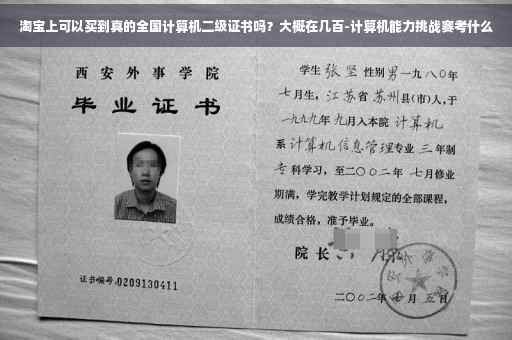 淘宝上可以买到真的全国计算机二级证书吗？大概在几百-计算机能力挑战赛考什么
西安外事学院
毕业证书
证书编号:0209130411
学生张坚性别男一九八〇年
七月生，江苏省苏州县(市)人,于
一九九九年九月入本院计算机
系计算机信息管理专业三年制
专科学习，至二〇〇二年七月修业
期满，学完教学计划规定的全部课程，
成绩合格，准予毕业。
院长
二〇〇二年 月五日